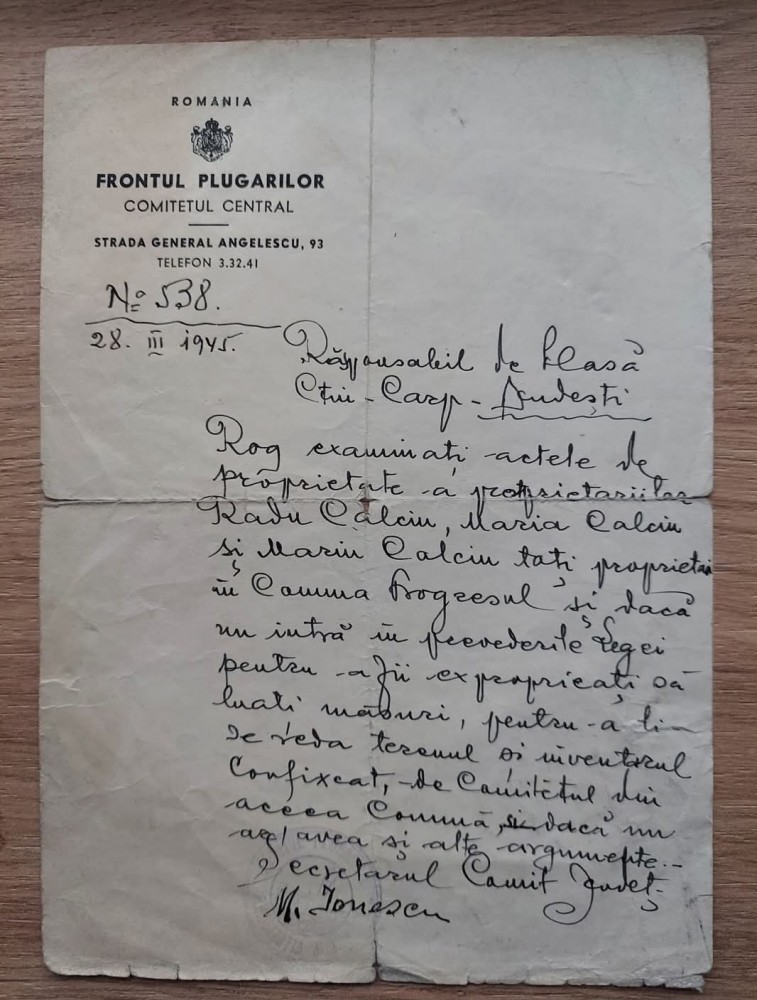 ROMANIA
FRONTUL PLUGARILOR
COMITETUL CENTRAL
STRADA GENERAL ANGELESCU, 93
TELEFON 3.32.41
No 538.
28. III 1945.
Răsponsabil de Clasă
Carp - Dudești
Rog examinați actele de
proprietate a proprietariilor
Radu Calciu, Maria Calciu
și Marin Calciu toți proprietari
în Comuna Progresul și dacă
nu intră în prevederile legei
pentru a fii expropricați să
luați măsuri, pentru a li
se reda terenul și inventarul
Confixcat, de Comitetul din
aceea Comună, dacă nu
avea și alte argumente.-
Secretarul Comit Județ.
M. Ionescu